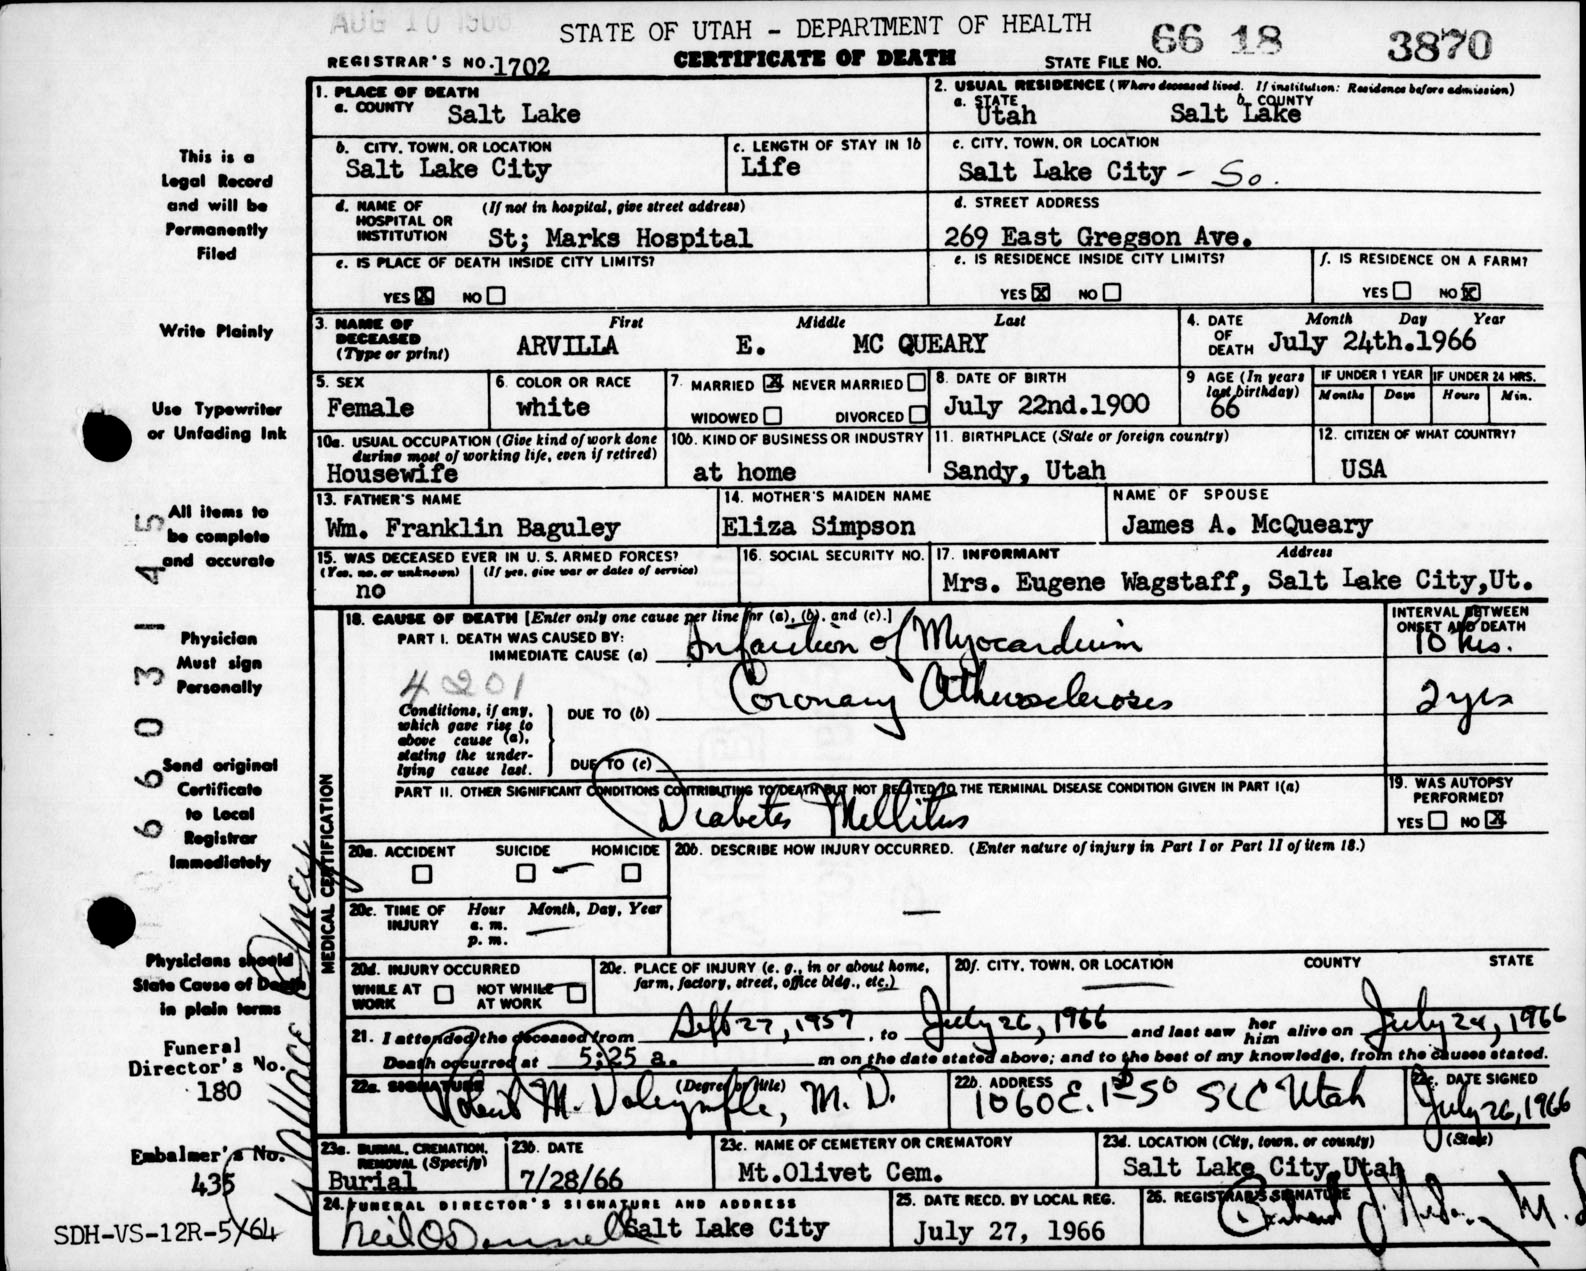 AUG 10 1966
STATE OF UTAH - DEPARTMENT OF HEALTH
66 18 3870
REGISTRAR'S NO. 1702
CERTIFICATE OF DEATH
STATE FILE No.
This is a
Legal Record
and will be
Permanently
Filed
Write Plainly
Use Typewriter
or Unfading Ink
All items to
be complete
and accurate
Physician
Must sign
Personally
Send original
Certificate
to Local
Registrar
Immediately
Physicians should
State Cause of Death
in plain terms
Funeral
Director's No.
180
Embalmer's No.
435
SDH-VS-12R-5/64
66031 45
Wallace
1. PLACE OF DEATH
a. COUNTY Salt Lake
2. USUAL RESIDENCE (Where deceased lived. If institution: Residence before admission)
a. STATE Utah b. COUNTY Salt Lake
b. CITY, TOWN, OR LOCATION
Salt Lake City
c. LENGTH OF STAY IN 1b
Life
c. CITY, TOWN, OR LOCATION
Salt Lake City - So.
d. NAME OF HOSPITAL OR INSTITUTION (If not in hospital, give street address)
St; Marks Hospital
d. STREET ADDRESS
269 East Gregson Ave.
e. IS PLACE OF DEATH INSIDE CITY LIMITS?
YES X NO
e. IS RESIDENCE INSIDE CITY LIMITS?
YES X NO
f. IS RESIDENCE ON A FARM?
YES NO X
3. NAME OF DECEASED (Type or print) First Middle Last
ARVILLA E. MC QUEARY
4. DATE OF DEATH Month Day Year
July 24th.1966
5. SEX
Female
6. COLOR OR RACE
white
7. MARRIED X NEVER MARRIED
WIDOWED DIVORCED
8. DATE OF BIRTH
July 22nd.1900
9 AGE (In years last birthday)
66
IF UNDER 1 YEAR IF UNDER 24 HRS.
Months Days Hours Min.
10a. USUAL OCCUPATION (Give kind of work done
during most of working life, even if retired)
Housewife
10b. KIND OF BUSINESS OR INDUSTRY
at home
11. BIRTHPLACE (State or foreign country)
Sandy, Utah
12. CITIZEN OF WHAT COUNTRY?
USA
13. FATHER'S NAME
Wm. Franklin Baguley
14. MOTHER'S MAIDEN NAME
Eliza Simpson
NAME OF SPOUSE
James A. McQueary
15. WAS DECEASED EVER IN U. S. ARMED FORCES?
(Yes, no, or unknown) (If yes, give war or dates of service)
no
16. SOCIAL SECURITY NO.
17. INFORMANT Address
Mrs. Eugene Wagstaff, Salt Lake City,Ut.
MEDICAL CERTIFICATION
18. CAUSE OF DEATH [Enter only one cause per line for (a), (b), and (c).]
INTERVAL BETWEEN
ONSET AND DEATH
PART I. DEATH WAS CAUSED BY:
IMMEDIATE CAUSE (a) Infarction of Myocardium 10 hrs.
4201
Conditions, if any,
which gave rise to
above cause (a),
stating the under-
lying cause last.
DUE TO (b) Coronary Atherosclerosis 2 yrs
DUE TO (c)
PART II. OTHER SIGNIFICANT CONDITIONS CONTRIBUTING TO DEATH BUT NOT RELATED TO THE TERMINAL DISEASE CONDITION GIVEN IN PART I(a)
Diabetes Mellitus
19. WAS AUTOPSY
PERFORMED?
YES NO X
20a. ACCIDENT SUICIDE HOMICIDE
20b. DESCRIBE HOW INJURY OCCURRED. (Enter nature of injury in Part I or Part II of item 18.)
20c. TIME OF INJURY Hour Month, Day, Year
a. m.
p. m.
20d. INJURY OCCURRED
WHILE AT WORK NOT WHILE AT WORK
20e. PLACE OF INJURY (e. g., in or about home,
farm, factory, street, office bldg., etc.)
20f. CITY, TOWN, OR LOCATION COUNTY STATE
21. I attended the deceased from Sept 27, 1957, to July 26, 1966 and last saw her him alive on July 24, 1966
Death occurred at 5;25 a. m on the date stated above; and to the best of my knowledge, from the causes stated.
22a. SIGNATURE (Degree or title)
Robert M. Dalrymple, M. D.
22b. ADDRESS
1060 E. 1st So SLC Utah
22c. DATE SIGNED
July 26, 1966
23a. BURIAL, CREMATION, REMOVAL (Specify)
Burial
23b. DATE
7/28/66
23c. NAME OF CEMETERY OR CREMATORY
Mt.Olivet Cem.
23d. LOCATION (City, town, or county) (State)
Salt Lake City,Utah
24. FUNERAL DIRECTOR'S SIGNATURE AND ADDRESS
Neil O'Donnell Salt Lake City
25. DATE RECD. BY LOCAL REG.
July 27, 1966
26. REGISTRAR'S SIGNATURE